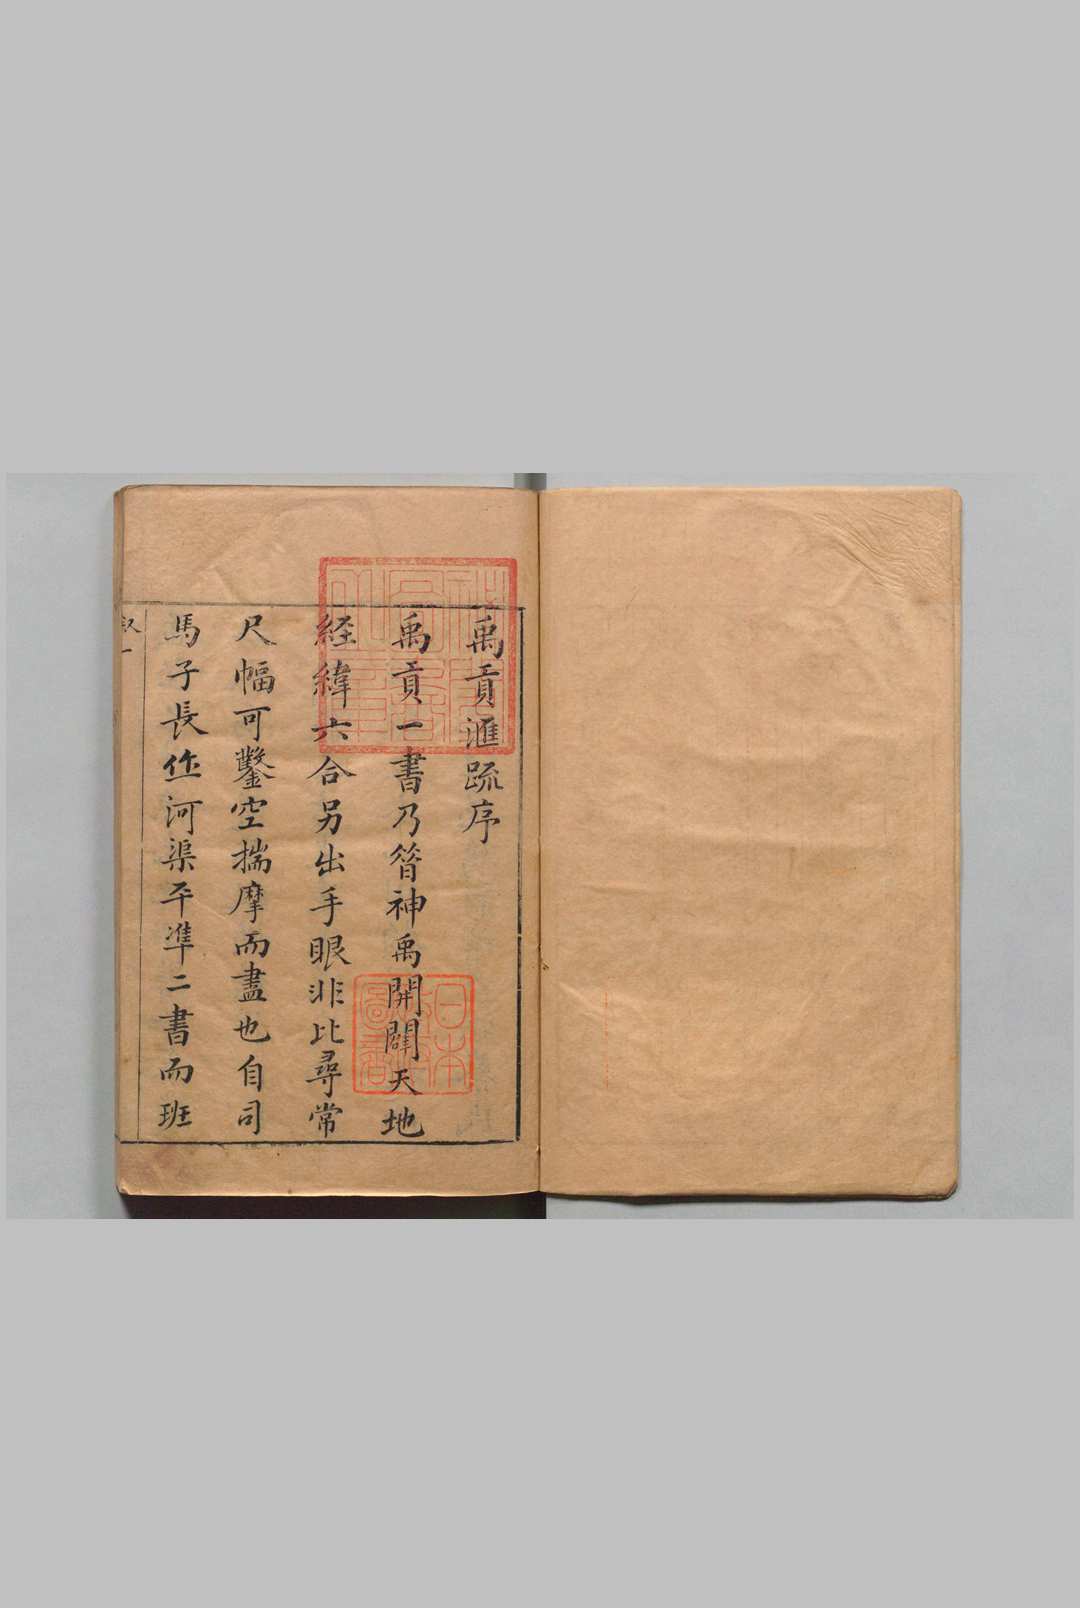 禹貢滙疏序
禹貢一書乃昝神禹開闢天地
經緯六合另出手眼非比尋常
尺幅可鑿空揣摩而盡也自司
馬子長作河渠平準二書而班
叙一
日本
圖書